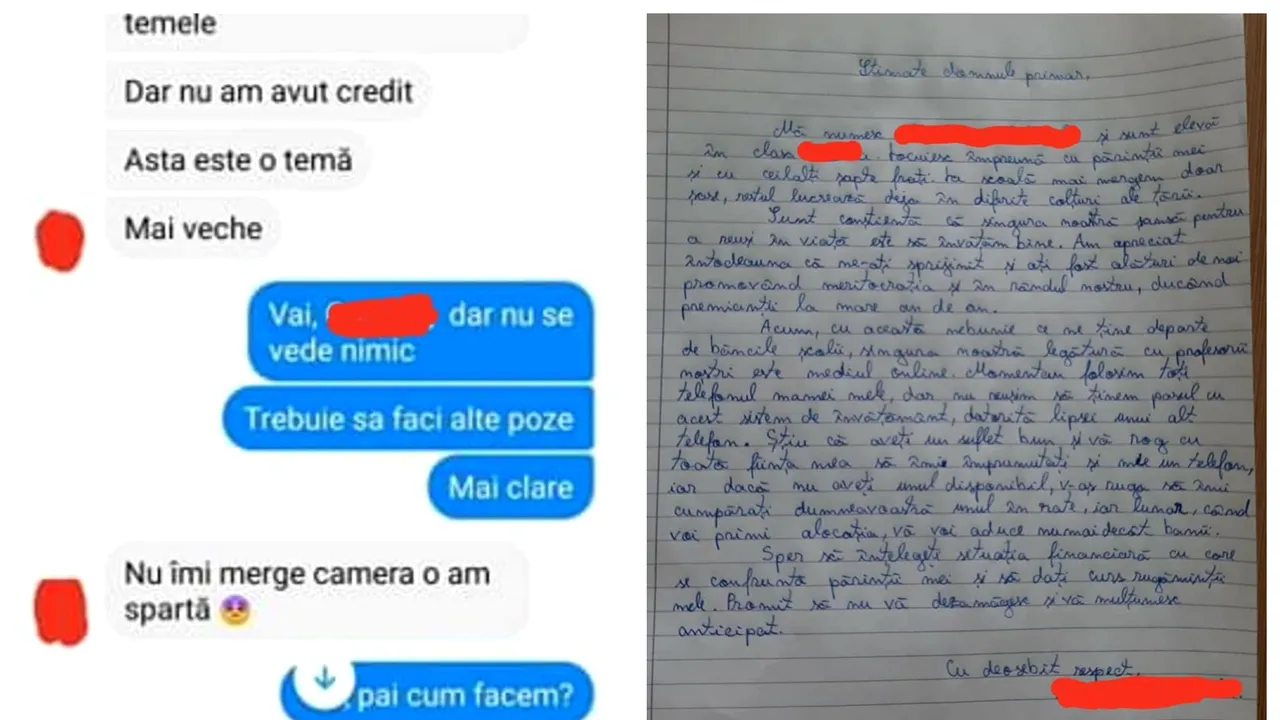 temele
Dar nu am avut credit
Asta este o temă
Mai veche
Vai, dar nu se
vede nimic
Trebuie sa faci alte poze
Mai clare
Nu îmi merge camera o am
spartă
pai cum facem?
Stimate domnule primar,
Mă numesc și sunt elevă
în clasa a. Locuiesc împreună cu părinții mei
și cu ceilalți șapte frați. La școală mai mergem doar
șase, restul lucrează deja în diferite colțuri ale țării.
Sunt conștientă că singura noastră șansă pentru
a reuși în viață este să învățăm bine. Am apreciat
întodeauna că ne-ați sprijinit și ați fost alături de noi
promovând meritocrația și în rândul nostru, ducând
premianții la mare an de an.
Acum, cu această nebunie ce ne ține departe
de băncile școlii, singura noastră legătură cu profesorii
noștri este mediul online. Momentan folosim toți
telefonul mamei mele, dar nu reușim să ținem pasul cu
acest sistem de învățământ, datorită lipsei unui alt
telefon. Știu că aveți un suflet bun și vă rog cu
toată ființa mea să îmi împrumutați și mie un telefon,
iar dacă nu aveți unul disponibil, v-aș ruga să îmi
cumpărați dumneavoastră unul în rate, iar lunar, când
voi primi alocația, vă voi aduce numaidecât banii.
Sper să înțelegeți situația financiară cu care
se confruntă părinții mei și să dați curs rugăminții
mele. Promit să nu vă dezamăgesc și vă mulțumesc
anticipat.
Cu deosebit respect,